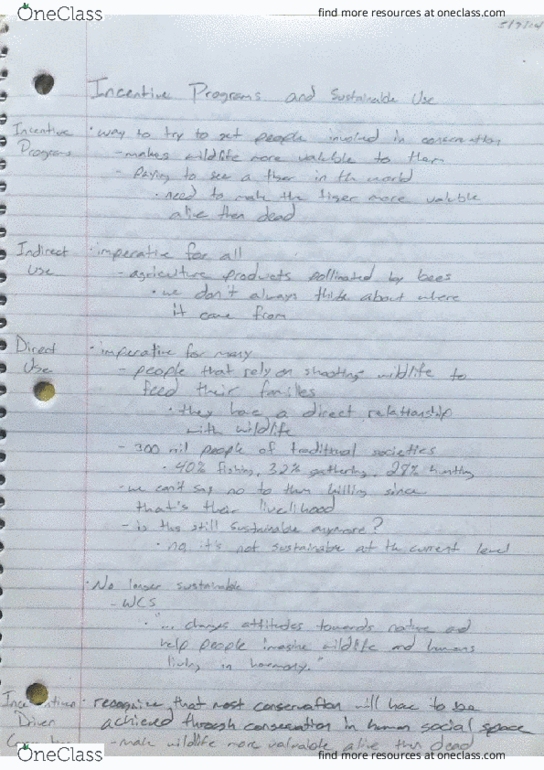 OneClass
find more resources at oneclass.com
Incentive Programs and Sustainable Use
Incentive · way to try to get people involved in conservation
Programs - makes wildlife more valuble to them
- Paying to see a tiger in th world
· need to make the tiger more valuble
alive then dead
Indirect · imperative for all
Use - agriculture products pollinated by bees
· we don't always think about where
it came from
Direct · imperative for many
Use - people that rely on shooting wildlife to
feed their families
· they have a direct relationship
with wildlife
- 300 mil people of traditional societies
· 40% fishing, 32% gathering, 28% hunting
- we can't say no to them killing since
that's their livelihood
- is this still sustainable anymore?
· no it's not sustainable at th current level
· No longer sustainable
- WCS
· "... changes attitudes towards nature and
help people imagine wildlife and humans
living in harmony."
Incentive · recognize that most conservation will hae to be
Driven achieved through conservation in human social space
- make wildlife more valuable alive then dead
OneClass
find more resources at oneclass.com